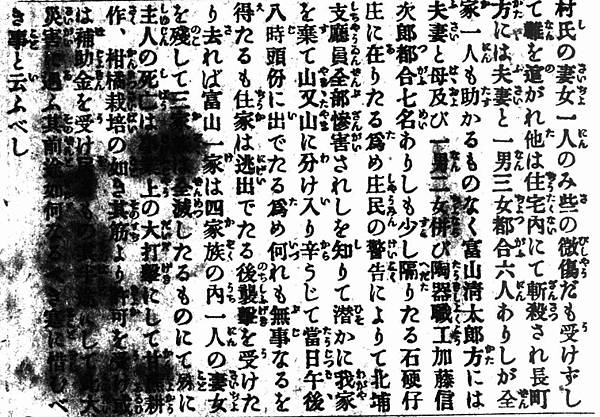 村氏の妻女一人のみ些の微傷だも受けずし
て難を遁がれ他は住宅内にて斬殺され長町
方には夫妻と一男三女都合六人ありしが全
家一人も助かるものなく富山清太郎方には
夫妻と母及び一男二女併び陶器職工加藤信
次郎都合七名ありしも少し隔りたる石硬仔
庄に在りたる為め庄民の警告によりて北埔
支廳員全部惨害されしを知りて潜かに我家
を棄て山又山に分け入り辛うじて當日午後
八時頭份に出でたる為め何れも無事なるを
得たるも住家は逃出でたる後襲撃を受けた
り去れば富山一家は四家族の内一人の妻女
を殘して三家は全滅したるものにて殊に
主人の死亡は上の大打撃にして耕
作、柑橘栽培の如き其筋より許可を受け或
は補助金を受けもの大
災害に遇ふ其前途如何な実に惜しべ
き事と云ふべし